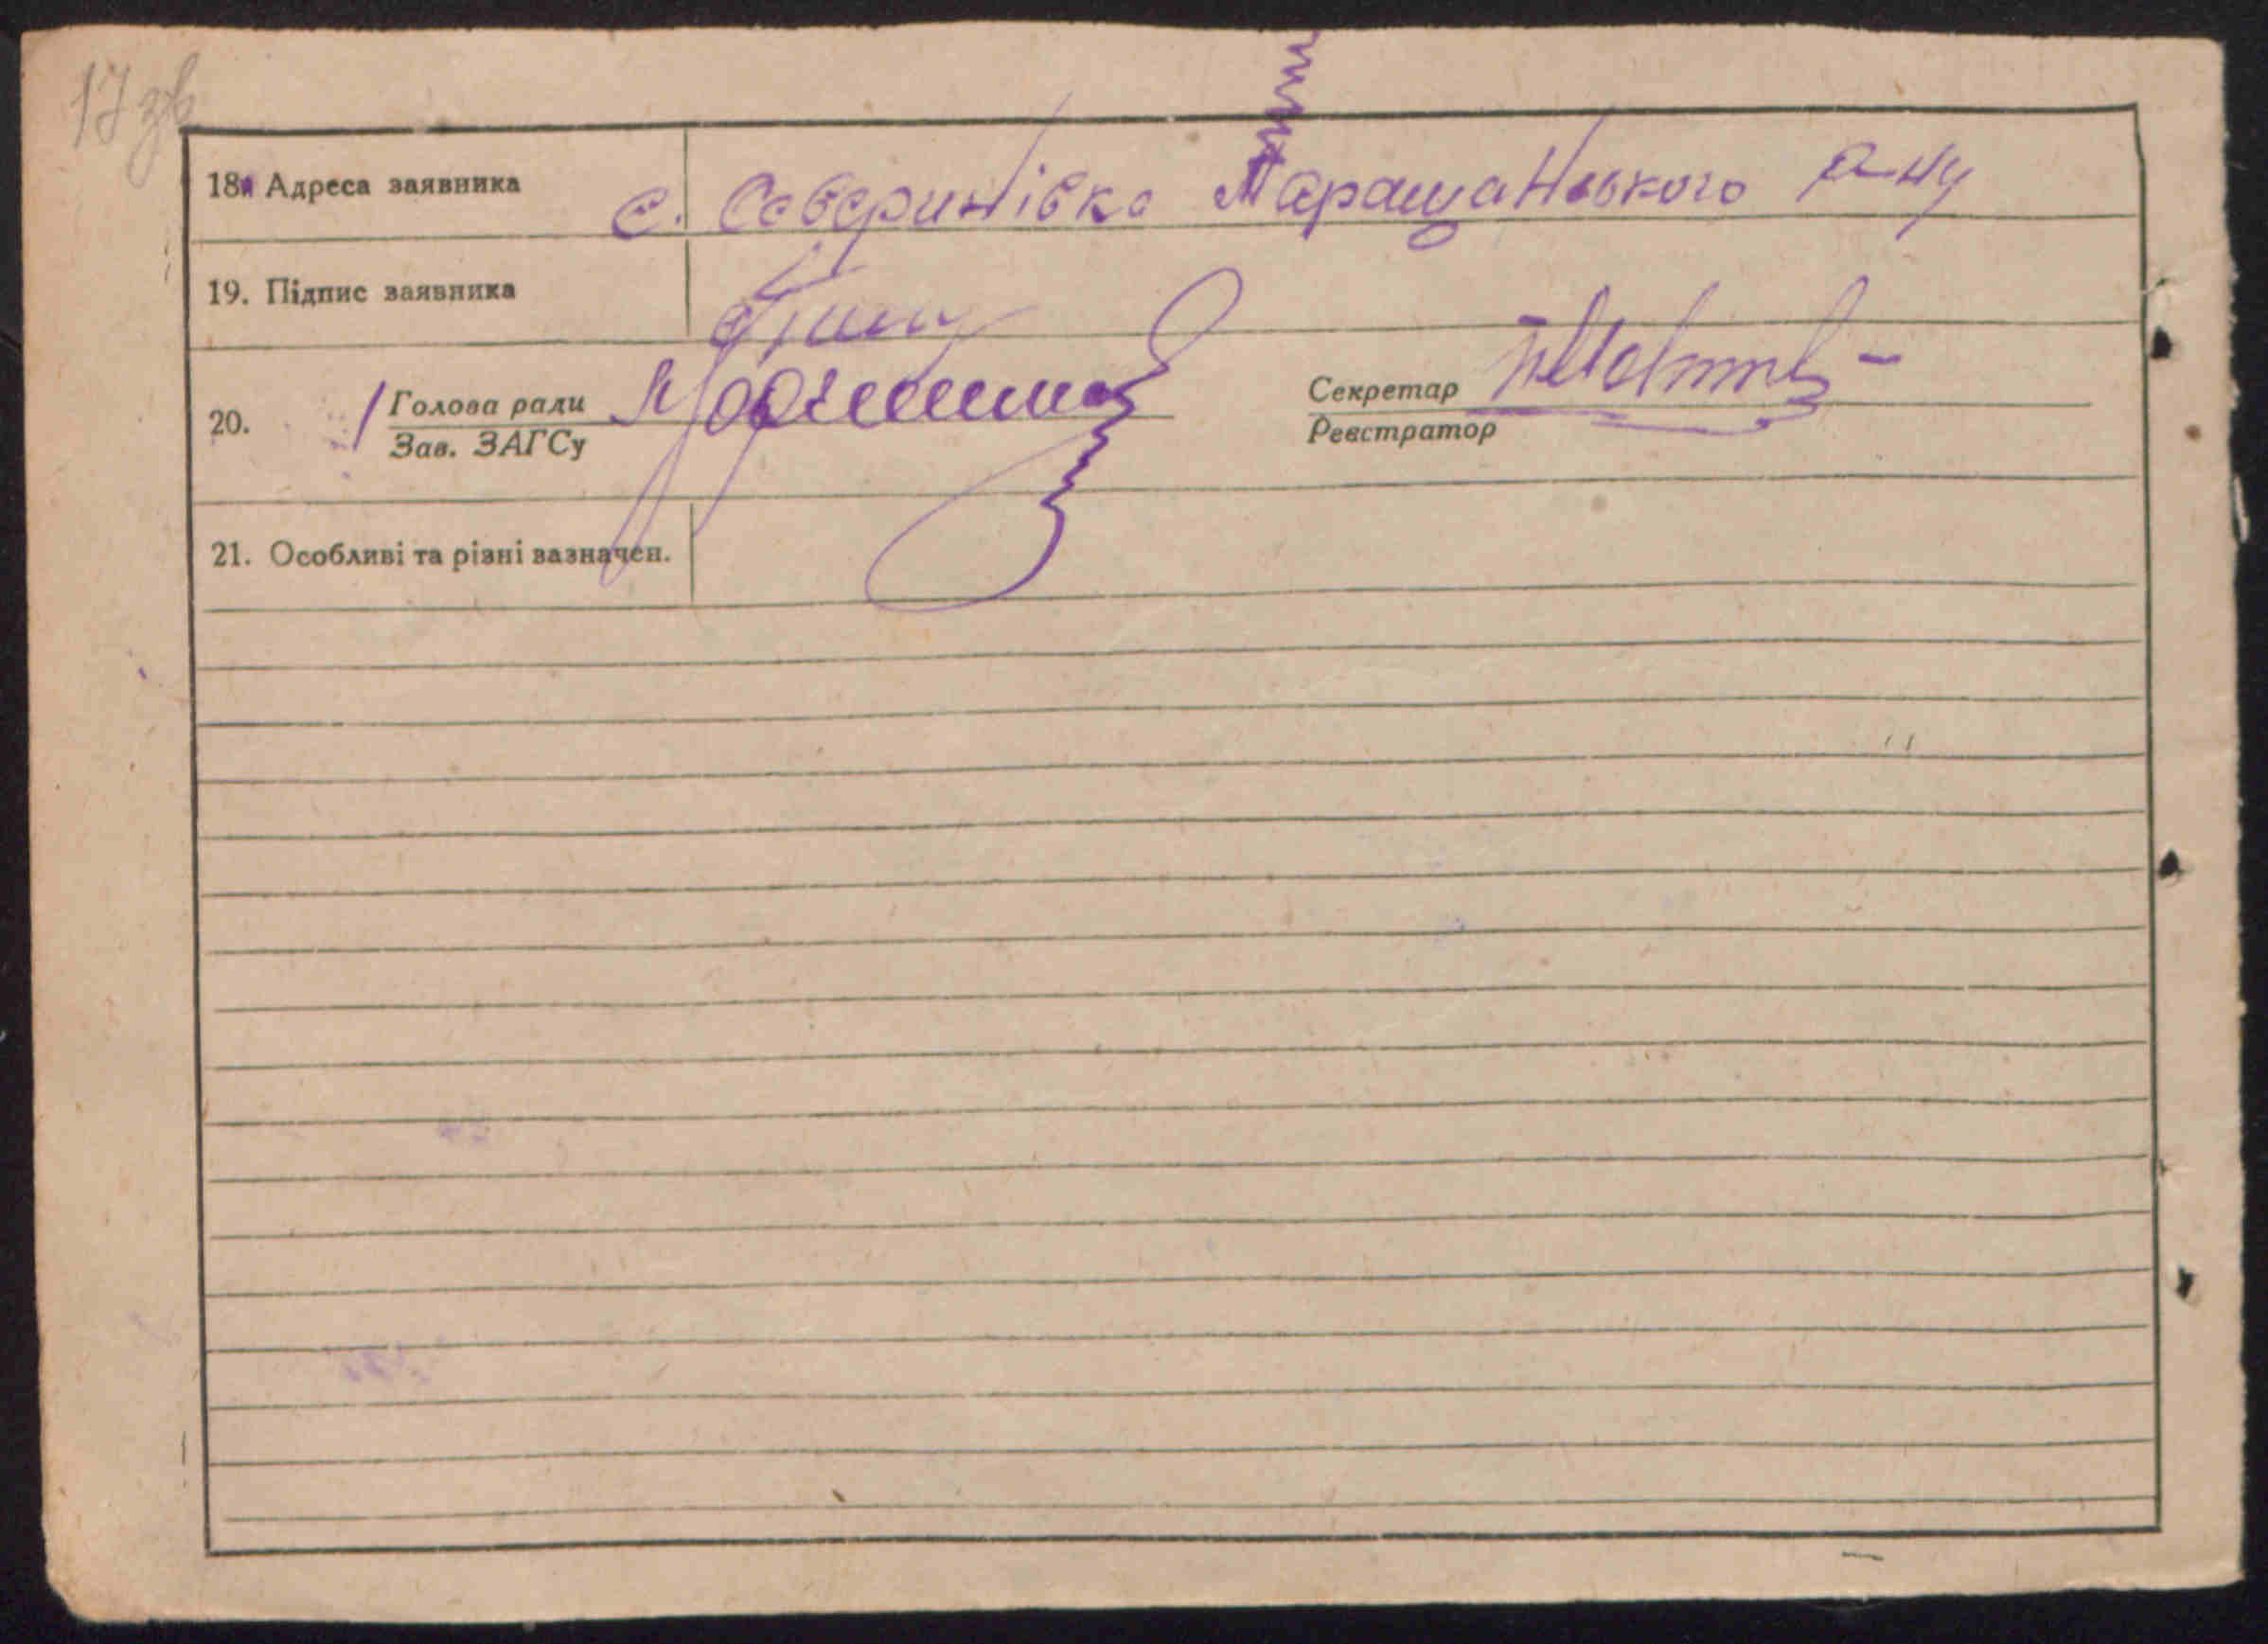 17 зв
18. Адреса заявника с. Северинівка Таращанського р-ну
19. Підпис заявника
20. Голова ради Секретар
Зав. ЗАГСу Реєстратор
21. Особливі та різні зазначен.